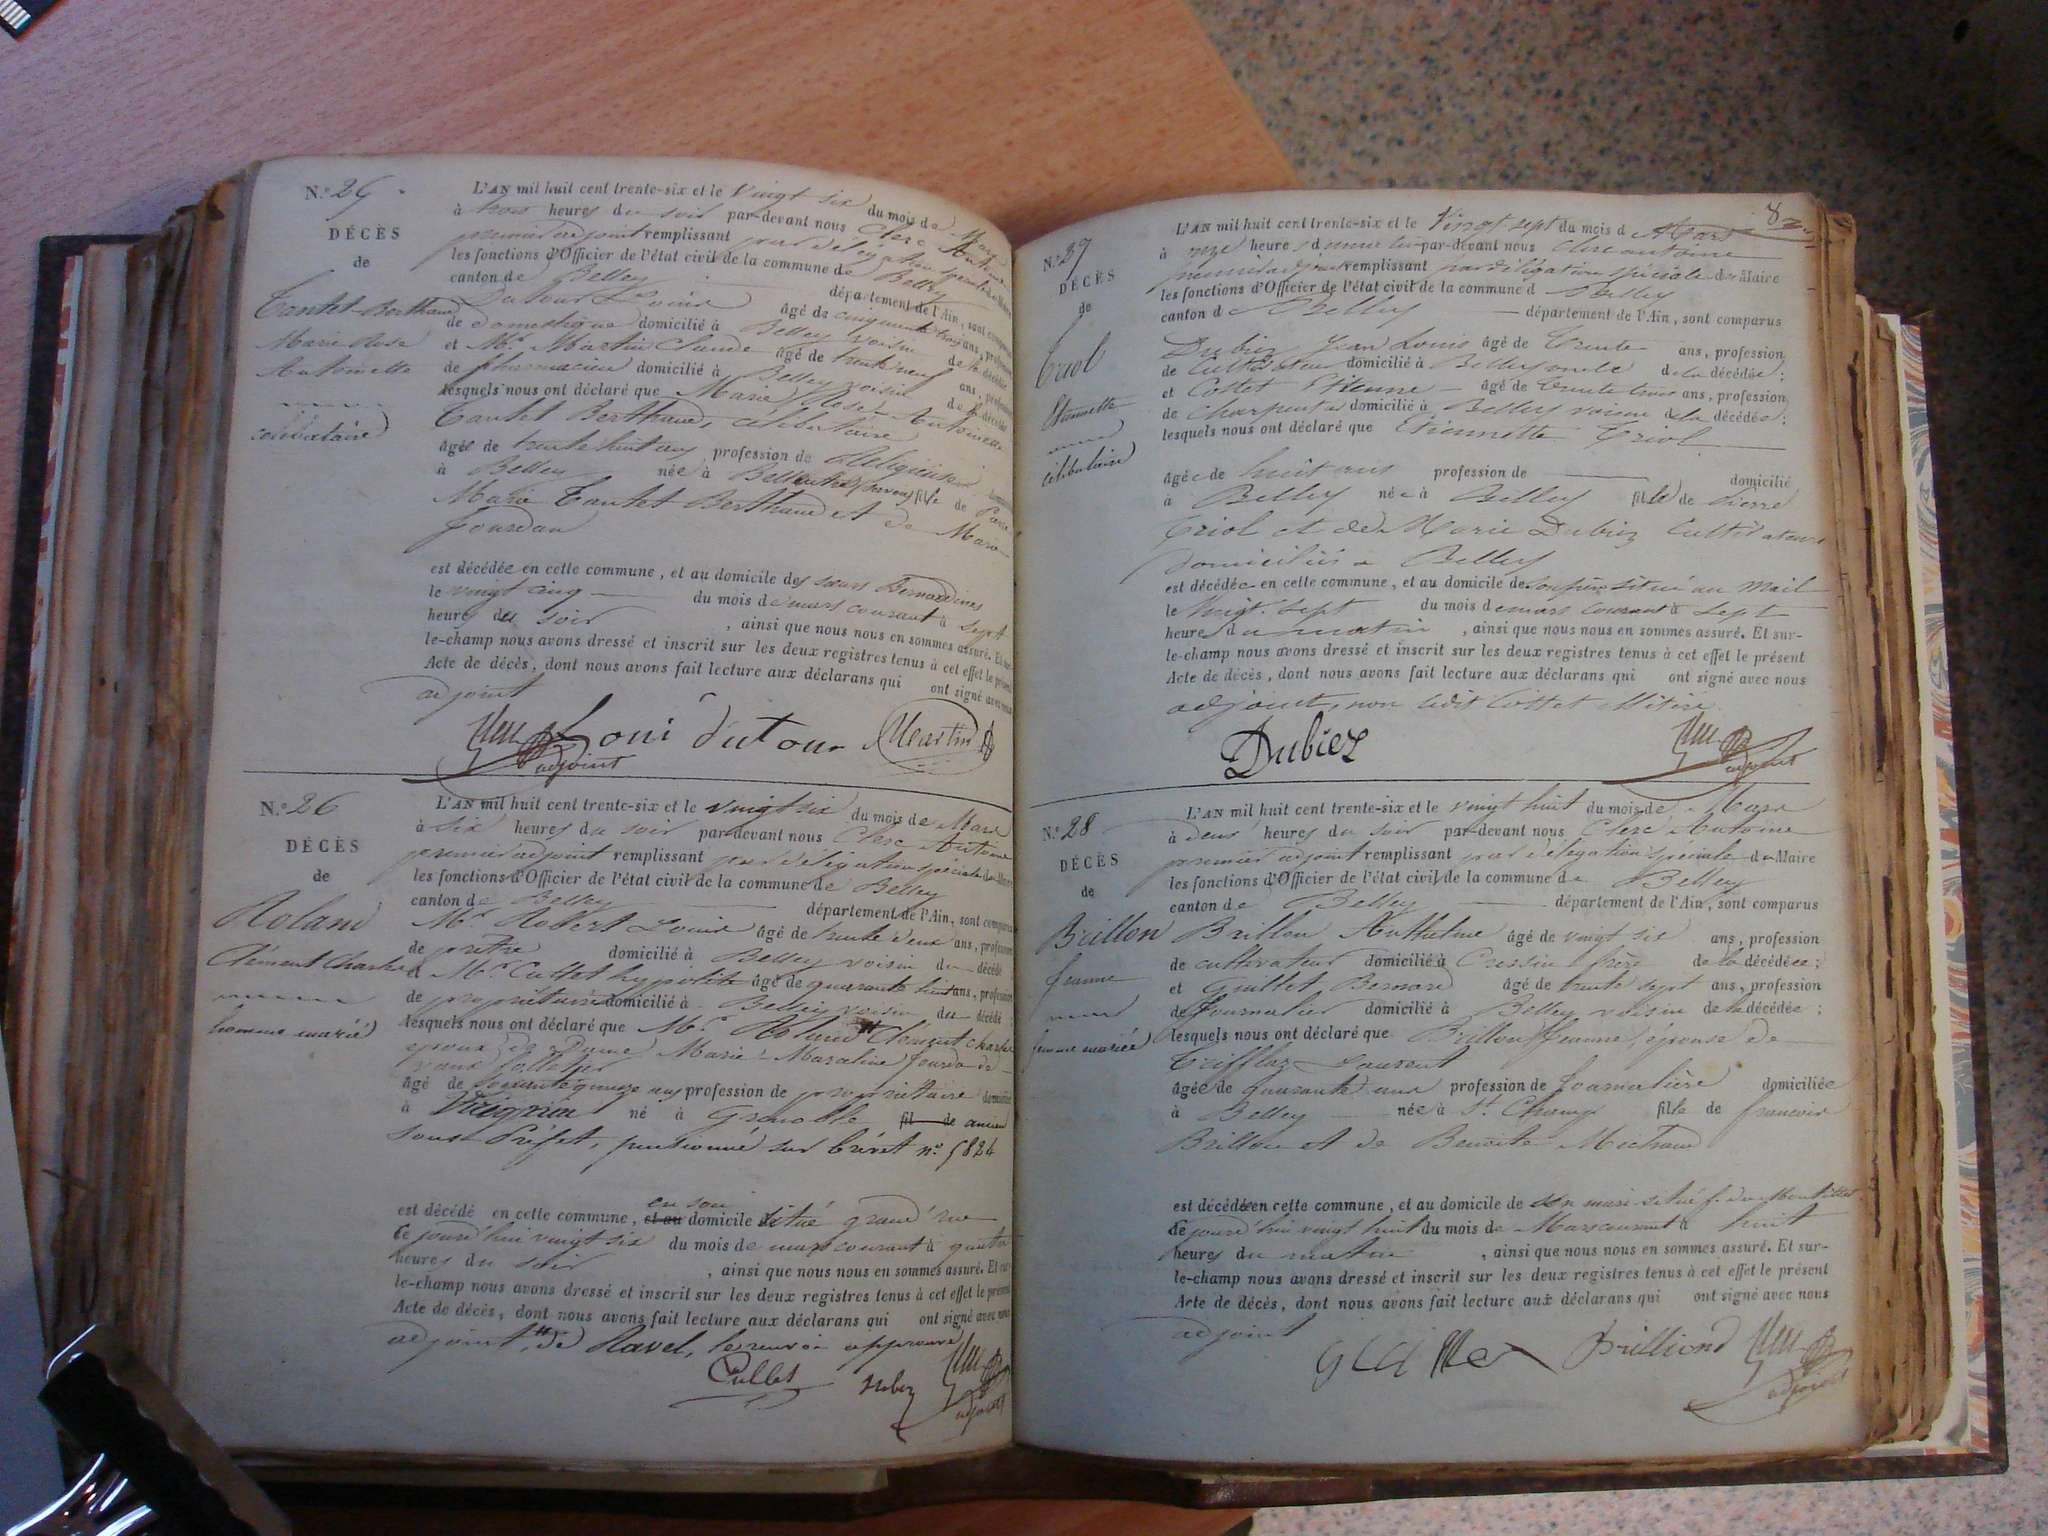 N.° 25
DÉCÈS
de
Tantet-Berthaud
Marie Rose
Antoinette
célibataire
L'AN mil huit cent trente-six et le Vingt six du mois de Mars
à trois heures du soir par-devant nous Clerc Antoine
premier adjoint remplissant par délégation spéciale du Maire
les fonctions d'Officier de l'état civil de la commune de Belley
canton de Belley département de l'Ain, sont comparus
Dutour Louis âgé de cinquante trois ans, profession
de domestique domicilié à Belley voisin de la décédée
et Mr. Martin Claude âgé de trente neuf ans, profession
de pharmacien domicilié à Belley voisin de la décédée
lesquels nous ont déclaré que Marie Rose Antoinette
Tantet Berthaud, célibataire
âgée de trente huit ans profession de Religieuse
à Belley née à fille de
Marie Tantet Berthaud et de Marie
Jourdan
est décédée en cette commune, et au domicile des sœurs Bernardines
le vingt cinq du mois de mars courant à sept
heures du soir, ainsi que nous nous en sommes assuré. Et sur-
le-champ nous avons dressé et inscrit sur les deux registres tenus à cet effet le présent
Acte de décès, dont nous avons fait lecture aux déclarans qui ont signé avec nous
adjoint
Loui dutour Martin
adjoint
N.° 26
DÉCÈS
de
Roland
Clément Charles
homme marié
L'AN mil huit cent trente-six et le vingt six du mois de Mars
à six heures du soir par-devant nous Clerc Antoine
premier adjoint remplissant par délégation spéciale du Maire
les fonctions d'Officier de l'état civil de la commune de Belley
canton de Belley département de l'Ain, sont comparus
Mr. Robert Louis âgé de trente deux ans, profession
de prêtre domicilié à Belley voisin du décédé
et Mr Cullet hypolite âgé de quarante huit ans, profession
de propriétaire domicilié à Belley voisin du décédé
lesquels nous ont déclaré que Mr. Roland Clément Charles
époux de Dame Marie
âgé de soixante quinze ans profession de propriétaire domicilié
à né à Grenoble fil de ancien
sous-Préfet, pensionné sur brévet n°. 5824
est décédé en cette commune, et au en son domicile situé grand'rue
le jourd'hui vingt six du mois de mars courant à quatre
heures du soir, ainsi que nous nous en sommes assuré. Et sur-
le-champ nous avons dressé et inscrit sur les deux registres tenus à cet effet le présent
Acte de décès, dont nous avons fait lecture aux déclarans qui ont signé avec nous
adjoint, " de Ravel, le renvoi approuvé
Cullet
adjoint
N.° 27
DÉCÈS
de
Triol
Etiennette
célibataire
L'AN mil huit cent trente-six et le Vingt sept du mois d Mars
à onze heures du matin par-devant nous Clerc antoine
premier adjoint remplissant par délégation spéciale du Maire
les fonctions d'Officier de l'état civil de la commune d Belley
canton d Belley département de l'Ain, sont comparus
Dubiez Jean Louis âgé de Trente ans, profession
de Cultivateur domicilié à Belley oncle de la décédée;
et Cottet Etienne âgé de trente trois ans, profession
de charpentier domicilié à Belley voisin de la décédée;
lesquels nous ont déclaré que Etiennette Triol
âgée de huit ans profession de domicilié
à Belley née à Belley fille de Pierre
Triol et de Marie Dubiez Cultivateurs
domiciliés à Belley
est décédée en cette commune, et au domicile de son père situé au Mail
le Vingt-sept du mois de mars courant à sept
heure du matin, ainsi que nous nous en sommes assuré. Et sur-
le-champ nous avons dressé et inscrit sur les deux registres tenus à cet effet le présent
Acte de décès, dont nous avons fait lecture aux déclarans qui ont signé avec nous
adjoint, non ledit Cottet illitéré.
Dubiez
adjoint
N.° 28
DÉCÈS
de
Brillon
Jeanne
femme mariée
L'AN mil huit cent trente-six et le vingt huit du mois de Mars
à deux heures du soir par-devant nous Clerc Antoine
premier adjoint remplissant par délégation spéciale du Maire
les fonctions d'Officier de l'état civil de la commune de Belley
canton de Belley département de l'Ain, sont comparus
Brillon Anthelme âgé de vingt six ans, profession
de cultivateur domicilié à Cressin frère de la décédée;
et Guillet Bernard âgé de trente sept ans, profession
de Journalier domicilié à Belley voisin de la décédée;
lesquels nous ont déclaré que Brillon Jeanne, épouse de
Laurent
âgée de quarante ans profession de Journalière domiciliée
à Belley née à St. Champ fille de francois
Brillon et de Benoite Michaud
est décédée en cette commune, et au domicile de son mari situé
le jourd'hui vingt huit du mois de Mars courant à huit
heures du matin, ainsi que nous nous en sommes assuré. Et sur-
le-champ nous avons dressé et inscrit sur les deux registres tenus à cet effet le présent
Acte de décès, dont nous avons fait lecture aux déclarans qui ont signé avec nous
adjoint
Brilliond
adjoint